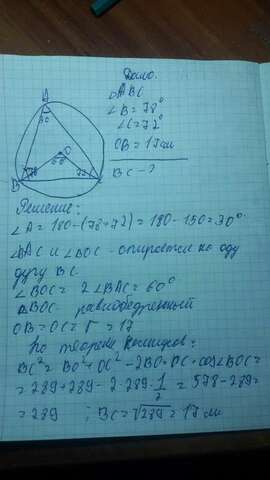 Дано:
△ABC
∠B=78°
∠C=72°
OB=17см
BC-?
A
30
O
60
B
78
72
C
Решение:
∠A=180-(78+72)=180-150=30°
∠BAC и ∠BOC - опираются на одну
дугу BC.
∠BOC= 2∠BAC=60°
△BOC равнобедренный
OB=OC=r=17
По теореме косинусов:
BC²=BO²+OC²-2BO·OC·cos∠BOC=
=289+289-2·289·1/2=578-289=
=289 ; BC=√289=17см